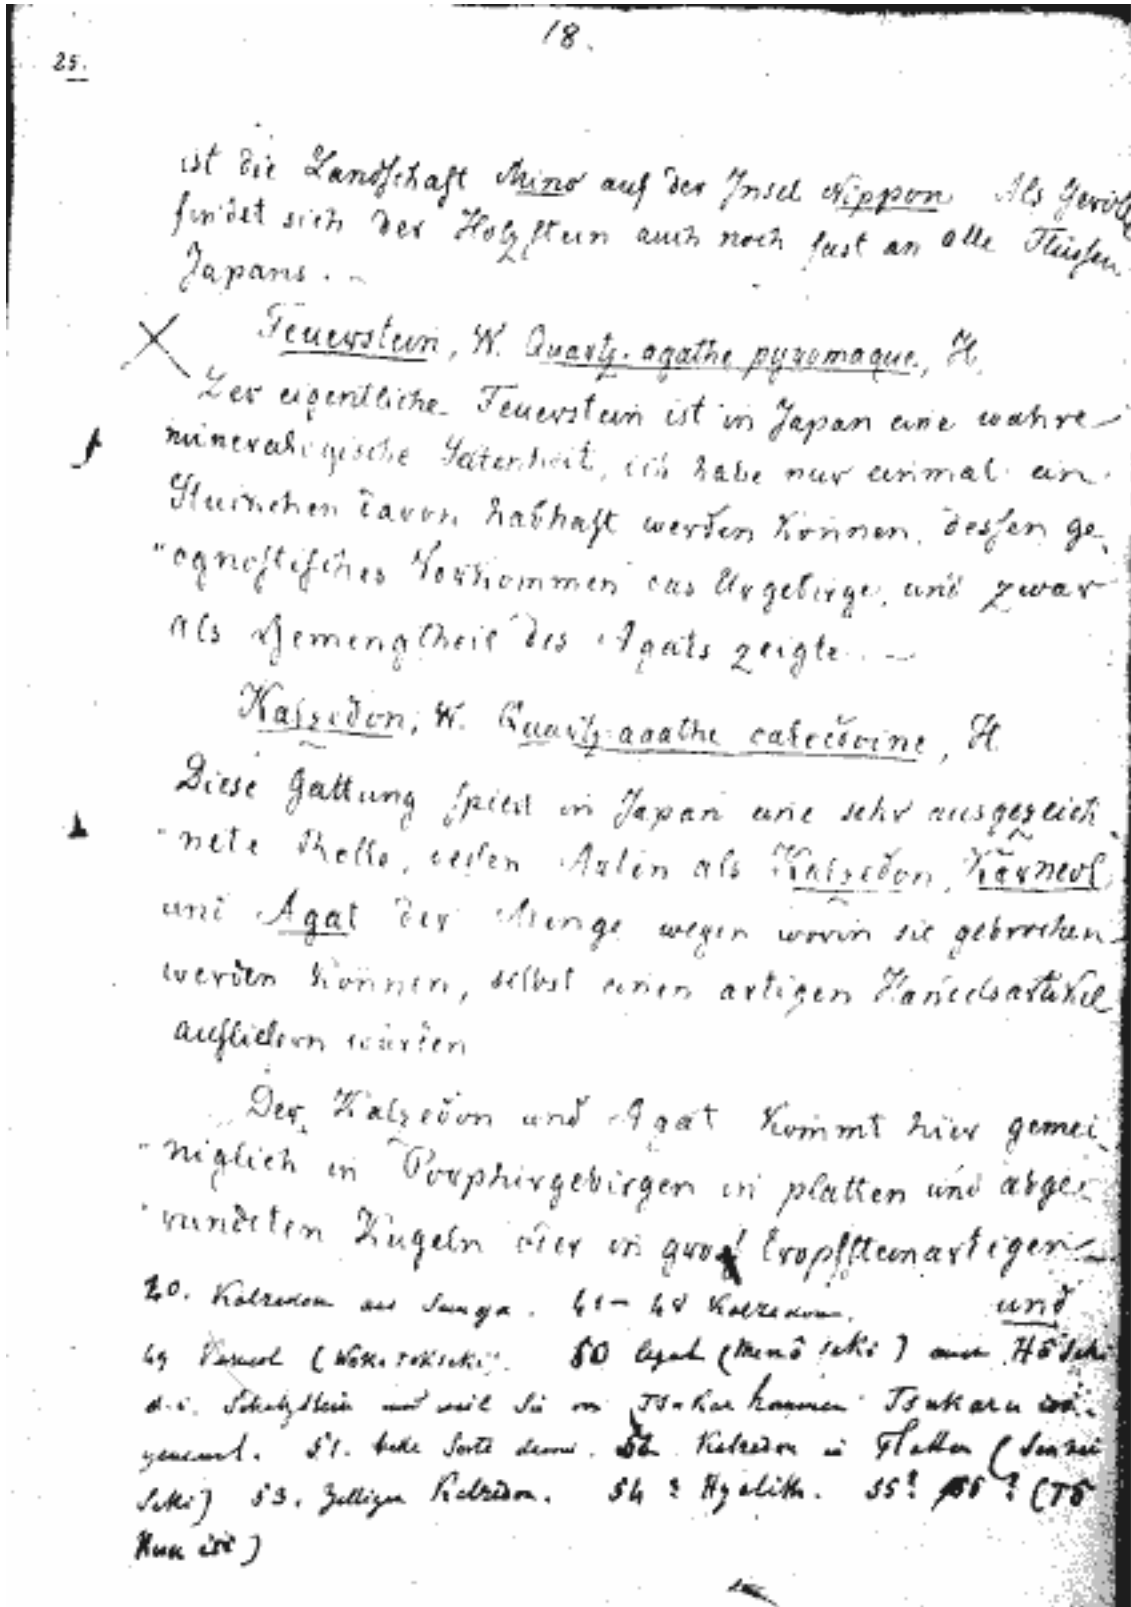 18.
25.
ist die Landschaft Mino auf der Insel Nippon. Als Gerölle
findet sich der Holzstein auch noch fast an alle Flüssen
Japans. –
Feuerstein, W. Quartz-agathe pyromaque, H.
Der eigentliche Feuerstein ist in Japan eine wahre
mineralogische Seltenheit, ich habe nur einmal ein
Stückchen davon habhaft werden können, dessen ge-
"ognostisches Vorkommen das Urgebirge, und zwar
als Gemengtheil des Agats zeigte. –
Kalzedon, W. Quartz-agathe calcedoine, H.
Diese Gattung spielt in Japan eine sehr ausgezeich-
"nete Rolle, dessen Arten als Kalzedon, Karneol
und Agat der Menge wegen worin sie gebrochen
werden können, selbst einen artigen Handelsartikel
ausliefern würden
Der Kalzedon und Agat kommt hier gemei-
"niglich in Porphirgebirgen in platten und abge-
"rundeten Kugeln oder in groß tropfsteinartigen
und
40. Kalzedon aus Suruga. 41 – 48 Kalzedon.
49 Karneol 50 Agat (Menô seki) auch Hô seki
d. i. Schatzstein und weil Sie von Tsukar kommen Tsukaru isi
genannt. 51. Sorte 52 Kalzedon in Platten
seki) 53. Zelliger Kalzedon. 54 ? Hyalith. 55? 56 ? (Tô
isi)